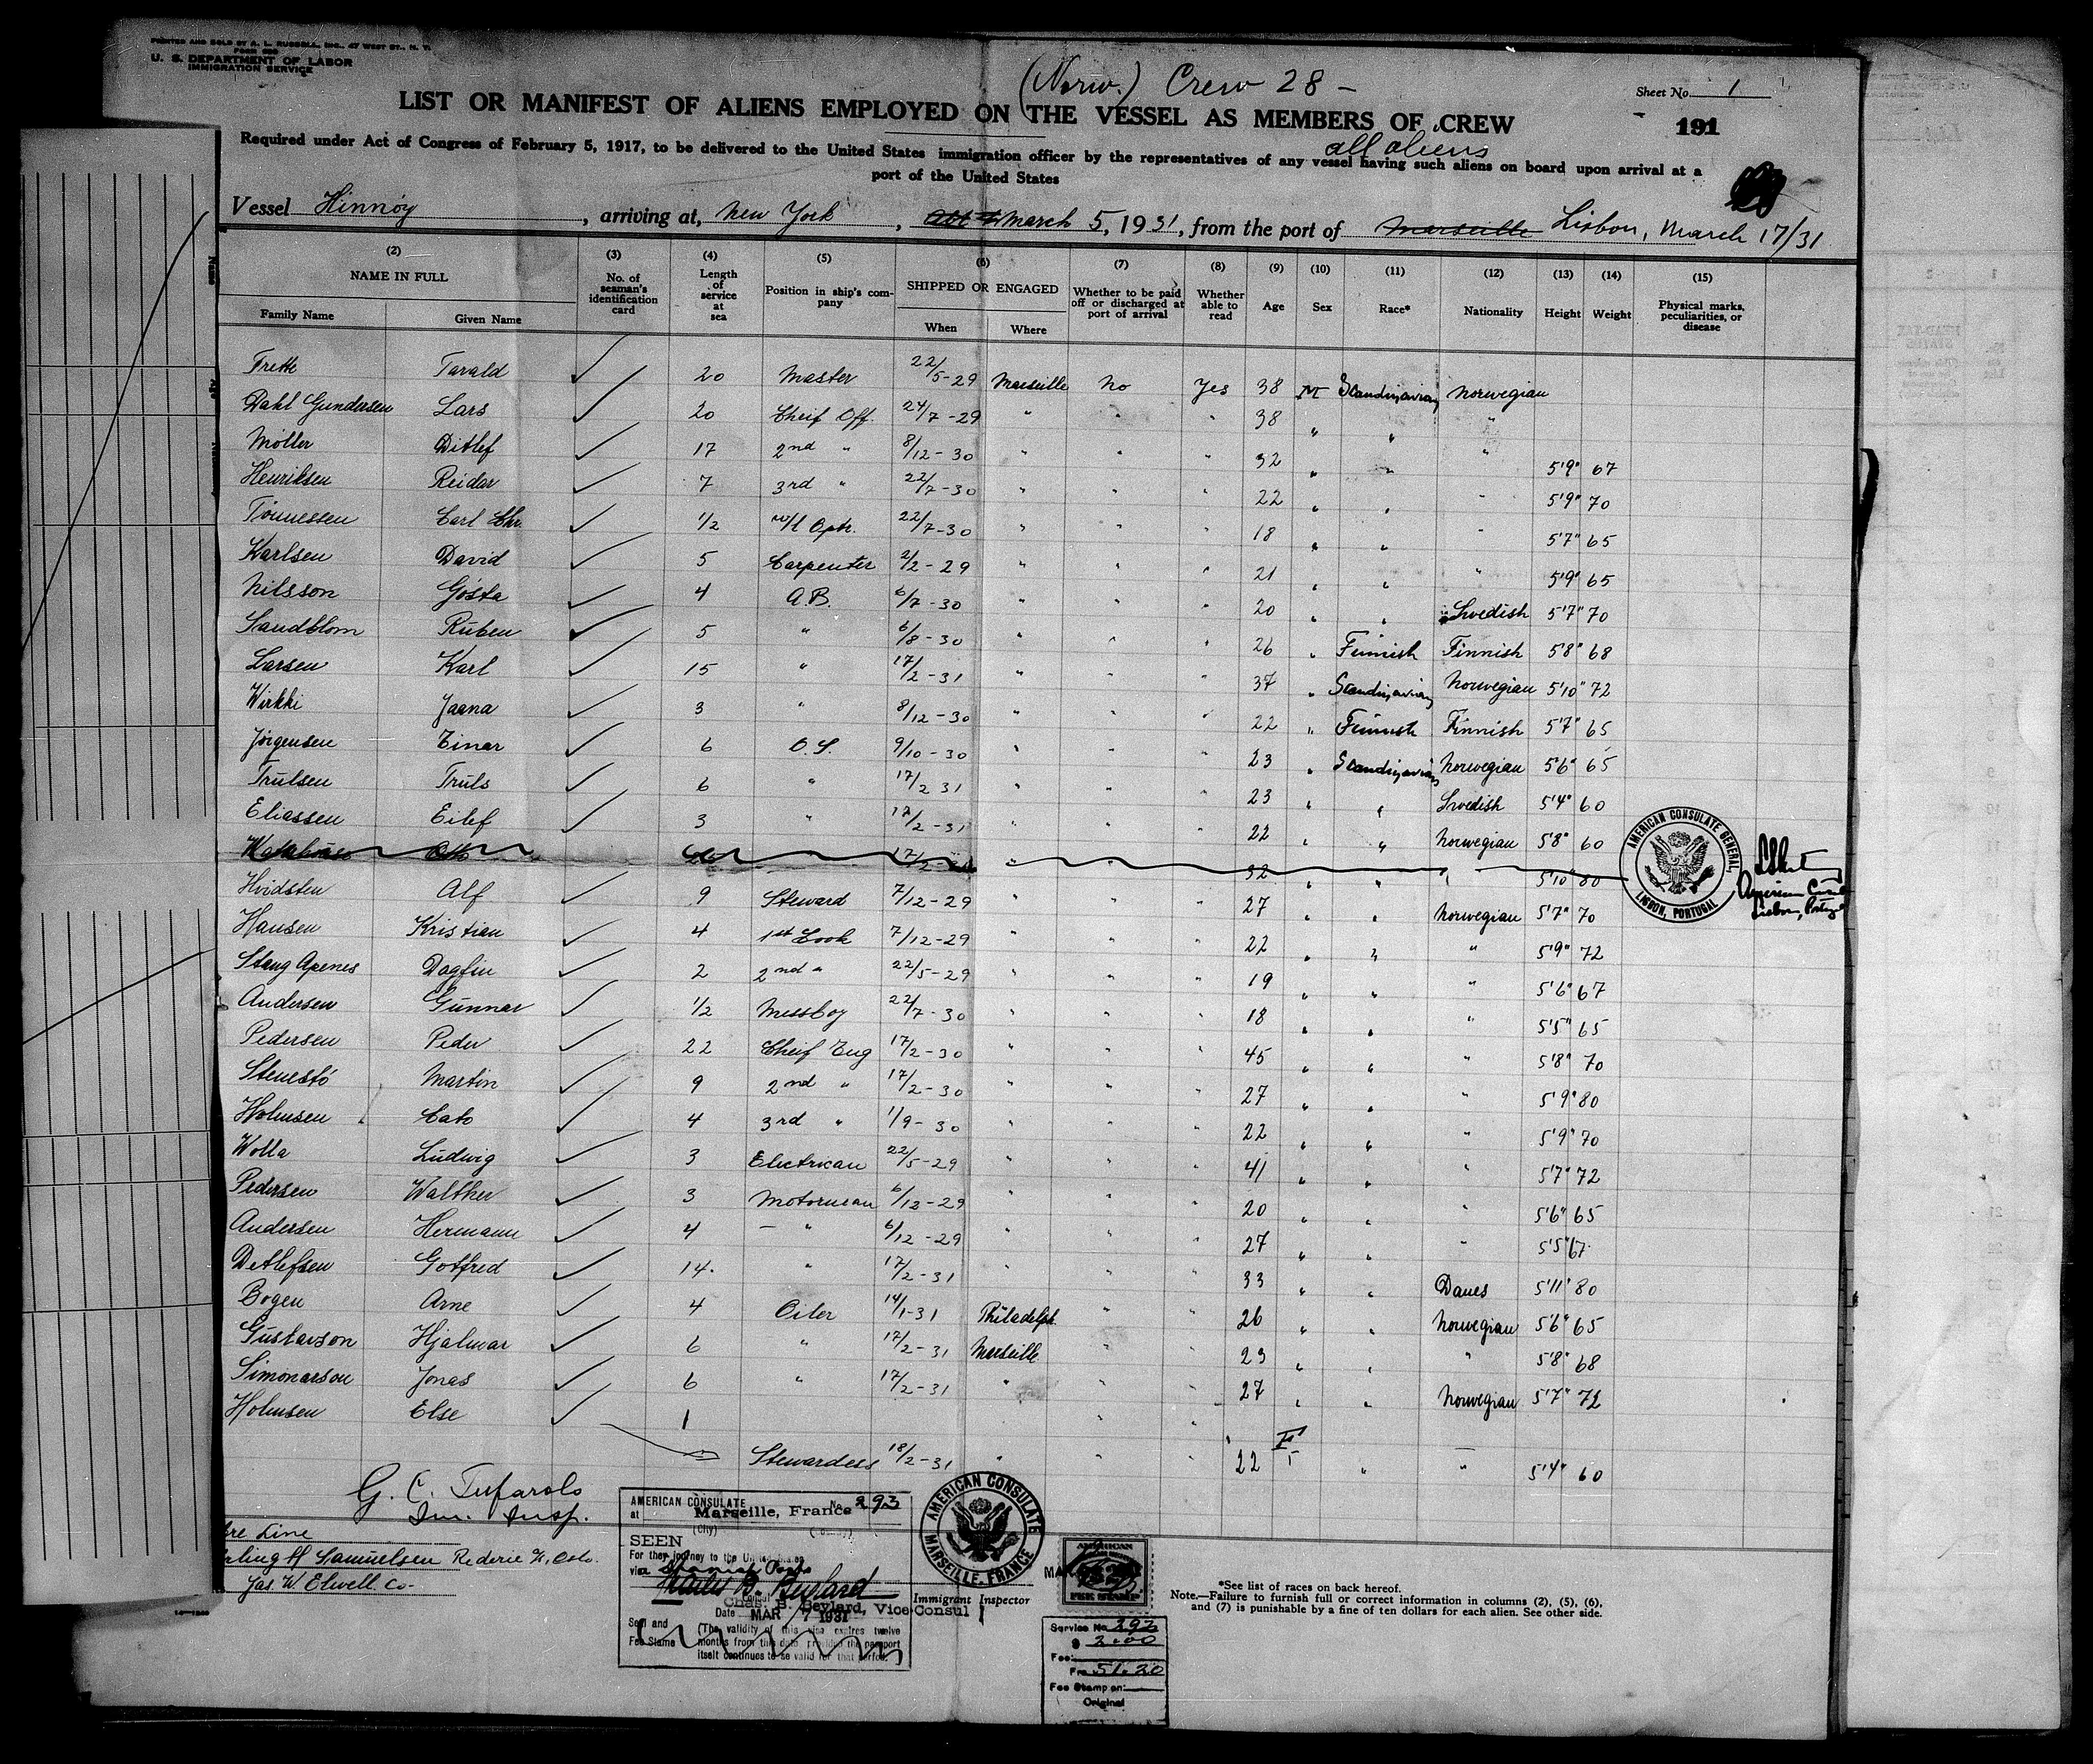 PRINTED AND SOLD BY A. L. RUSSELL, INC., 47 WEST ST., N. Y.
U. S. DEPARTMENT OF LABOR
IMMIGRATION SERVICE
(Norw.) Crew 28 -
Sheet No. 1
LIST OR MANIFEST OF ALIENS EMPLOYED ON THE VESSEL AS MEMBERS OF CREW
191
all aliens
Required under Act of Congress of February 5, 1917, to be delivered to the United States immigration officer by the representatives of any vessel having such aliens on board upon arrival at a
port of the United States
Vessel Hinnöy, arriving at, New York, March 5, 1931, from the port of Marseille Lisbon, March 17/31
(2) (3) (4) (5) (6) (7) (8) (9) (10) (11) (12) (13) (14) (15)
NAME IN FULL No. of seaman's identification card Length of service at sea Position in ship's company SHIPPED OR ENGAGED Whether to be paid off or discharged at port of arrival Whether able to read Age Sex Race* Nationality Height Weight Physical marks, peculiarities, or disease
Family Name Given Name When Where
Frette Tarald 20 Master 22/5-29 Marseille No Yes 38 M Scandinavian Norwegian
Dahl Gundersen Lars 20 Cheif Off. 24/7-29 " " " 38 " " "
Möller Ditlef 17 2nd " 8/12-30 " " " 32 " " " 5'9" 67
Henriksen Reidar 7 3rd " 22/7-30 " " " 22 " " " 5'9" 70
Tönnessen Carl Chr. 1/2 W/t Optr. 22/7-30 " " " 18 " " " 5'7" 65
Karlsen David 5 Carpenter 2/2-29 " " " 21 " " " 5'9" 65
Nilsson Gösta 4 A.B. 6/7-30 " " " 20 " " Swedish 5'7" 70
Sandblom Ruben 5 " 6/8-30 " " " 26 " Finnish Finnish 5'8" 68
Larsen Karl 15 " 17/2-31 " " " 37 " Scandinavian Norwegian 5'10" 72
Wirkki Jaana 3 " 8/12-30 " " " 22 " Finnish Finnish 5'7" 65
Jörgensen Einar 6 O.S. 9/10-30 " " " 23 " Scandinavian Norwegian 5'6" 65
Trulsen Truls 6 " 17/2 31 " " " 23 " " Swedish 5'4" 60
Eliassen Eilef 3 " 17/2-31 " " " 22 " " Norwegian 5'8" 60
Otto " 17/2 " 32 " " " 5'10" 80
Hvidsten Alf 9 Steward 7/12-29 " " " 27 " " Norwegian 5'7" 70
Hansen Kristian 4 1st Cook 7/12-29 " " " 22 " " " 5'9" 72
Stang Apenes Dagfin 2 2nd " 22/5-29 " " " 19 " " " 5'6" 67
Andersen Gunnar 1/2 Messboy 22/7-30 " " " 18 " " " 5'5" 65
Pedersen Peder 22 Cheif Eng 17/2-30 " " " 45 " " " 5'8" 70
Stenestö Martin 9 2nd " 17/2-30 " " " 27 " " " 5'9" 80
Holmsen Cato 4 3rd " 1/9-30 " " " 22 " " " 5'9" 70
Wolla Ludwig 3 Electrican 22/5-29 " " " 41 " " " 5'7" 72
Pedersen Walther 3 Motorman 6/12-29 " " " 20 " " " 5'6" 65
Andersen Hermann 4 - " 6/12-29 " " " 27 " " " 5'5" 67
Detlefsen Gotfred 14 " 17/2-31 " " " 33 " " Danes 5'11" 80
Bogen Arne 4 Oiler 14/1-31 Philadelph. " " 26 " " Norwegian 5'6" 65
Gustavson Hjalmar 6 " 17/2-31 Marseille " " 23 " " " 5'8" 68
Simonarson Jonas 6 " 17/2-31 " " " 27 " " Norwegian 5'7" 72
Holmsen Else 1
Stewardess 18/2-31 " " " 22 F " " 5'4" 60
AMERICAN CONSULATE GENERAL
LISBON, PORTUGAL
American Consul
Lisbon, Portugal
G. C. Tufarolo
Imm. Insp.
Line
Erling H Samuelsen Rederie A/S, Oslo.
Jas. W. Elwell Co-
AMERICAN CONSULATE No. 293
at Marseille, France
(City)
SEEN
For the journey to the United States
via Spanish Ports
Charles B. Beylard
Chas. B. Beylard, Vice Consul
Date MAR 7 1931
Seal and Fee Stamp
(The validity of this visa expires twelve
months from this date provided the passport
itself continues to be valid for that period.)
AMERICAN CONSULATE
MARSEILLE, FRANCE
Immigrant Inspector
AMERICAN
FEE STAMP
Service No. 293
$ 2.00
Fee:
Frs 51.20
Fee Stamp on:
Original
*See list of races on back hereof.
Note.—Failure to furnish full or correct information in columns (2), (5), (6),
and (7) is punishable by a fine of ten dollars for each alien. See other side.